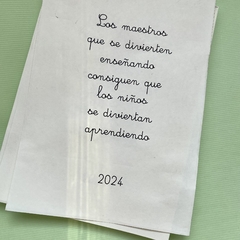 Los maestros
que se divierten
enseñando
consiguen que
los niños
se diviertan
aprendiendo
2024